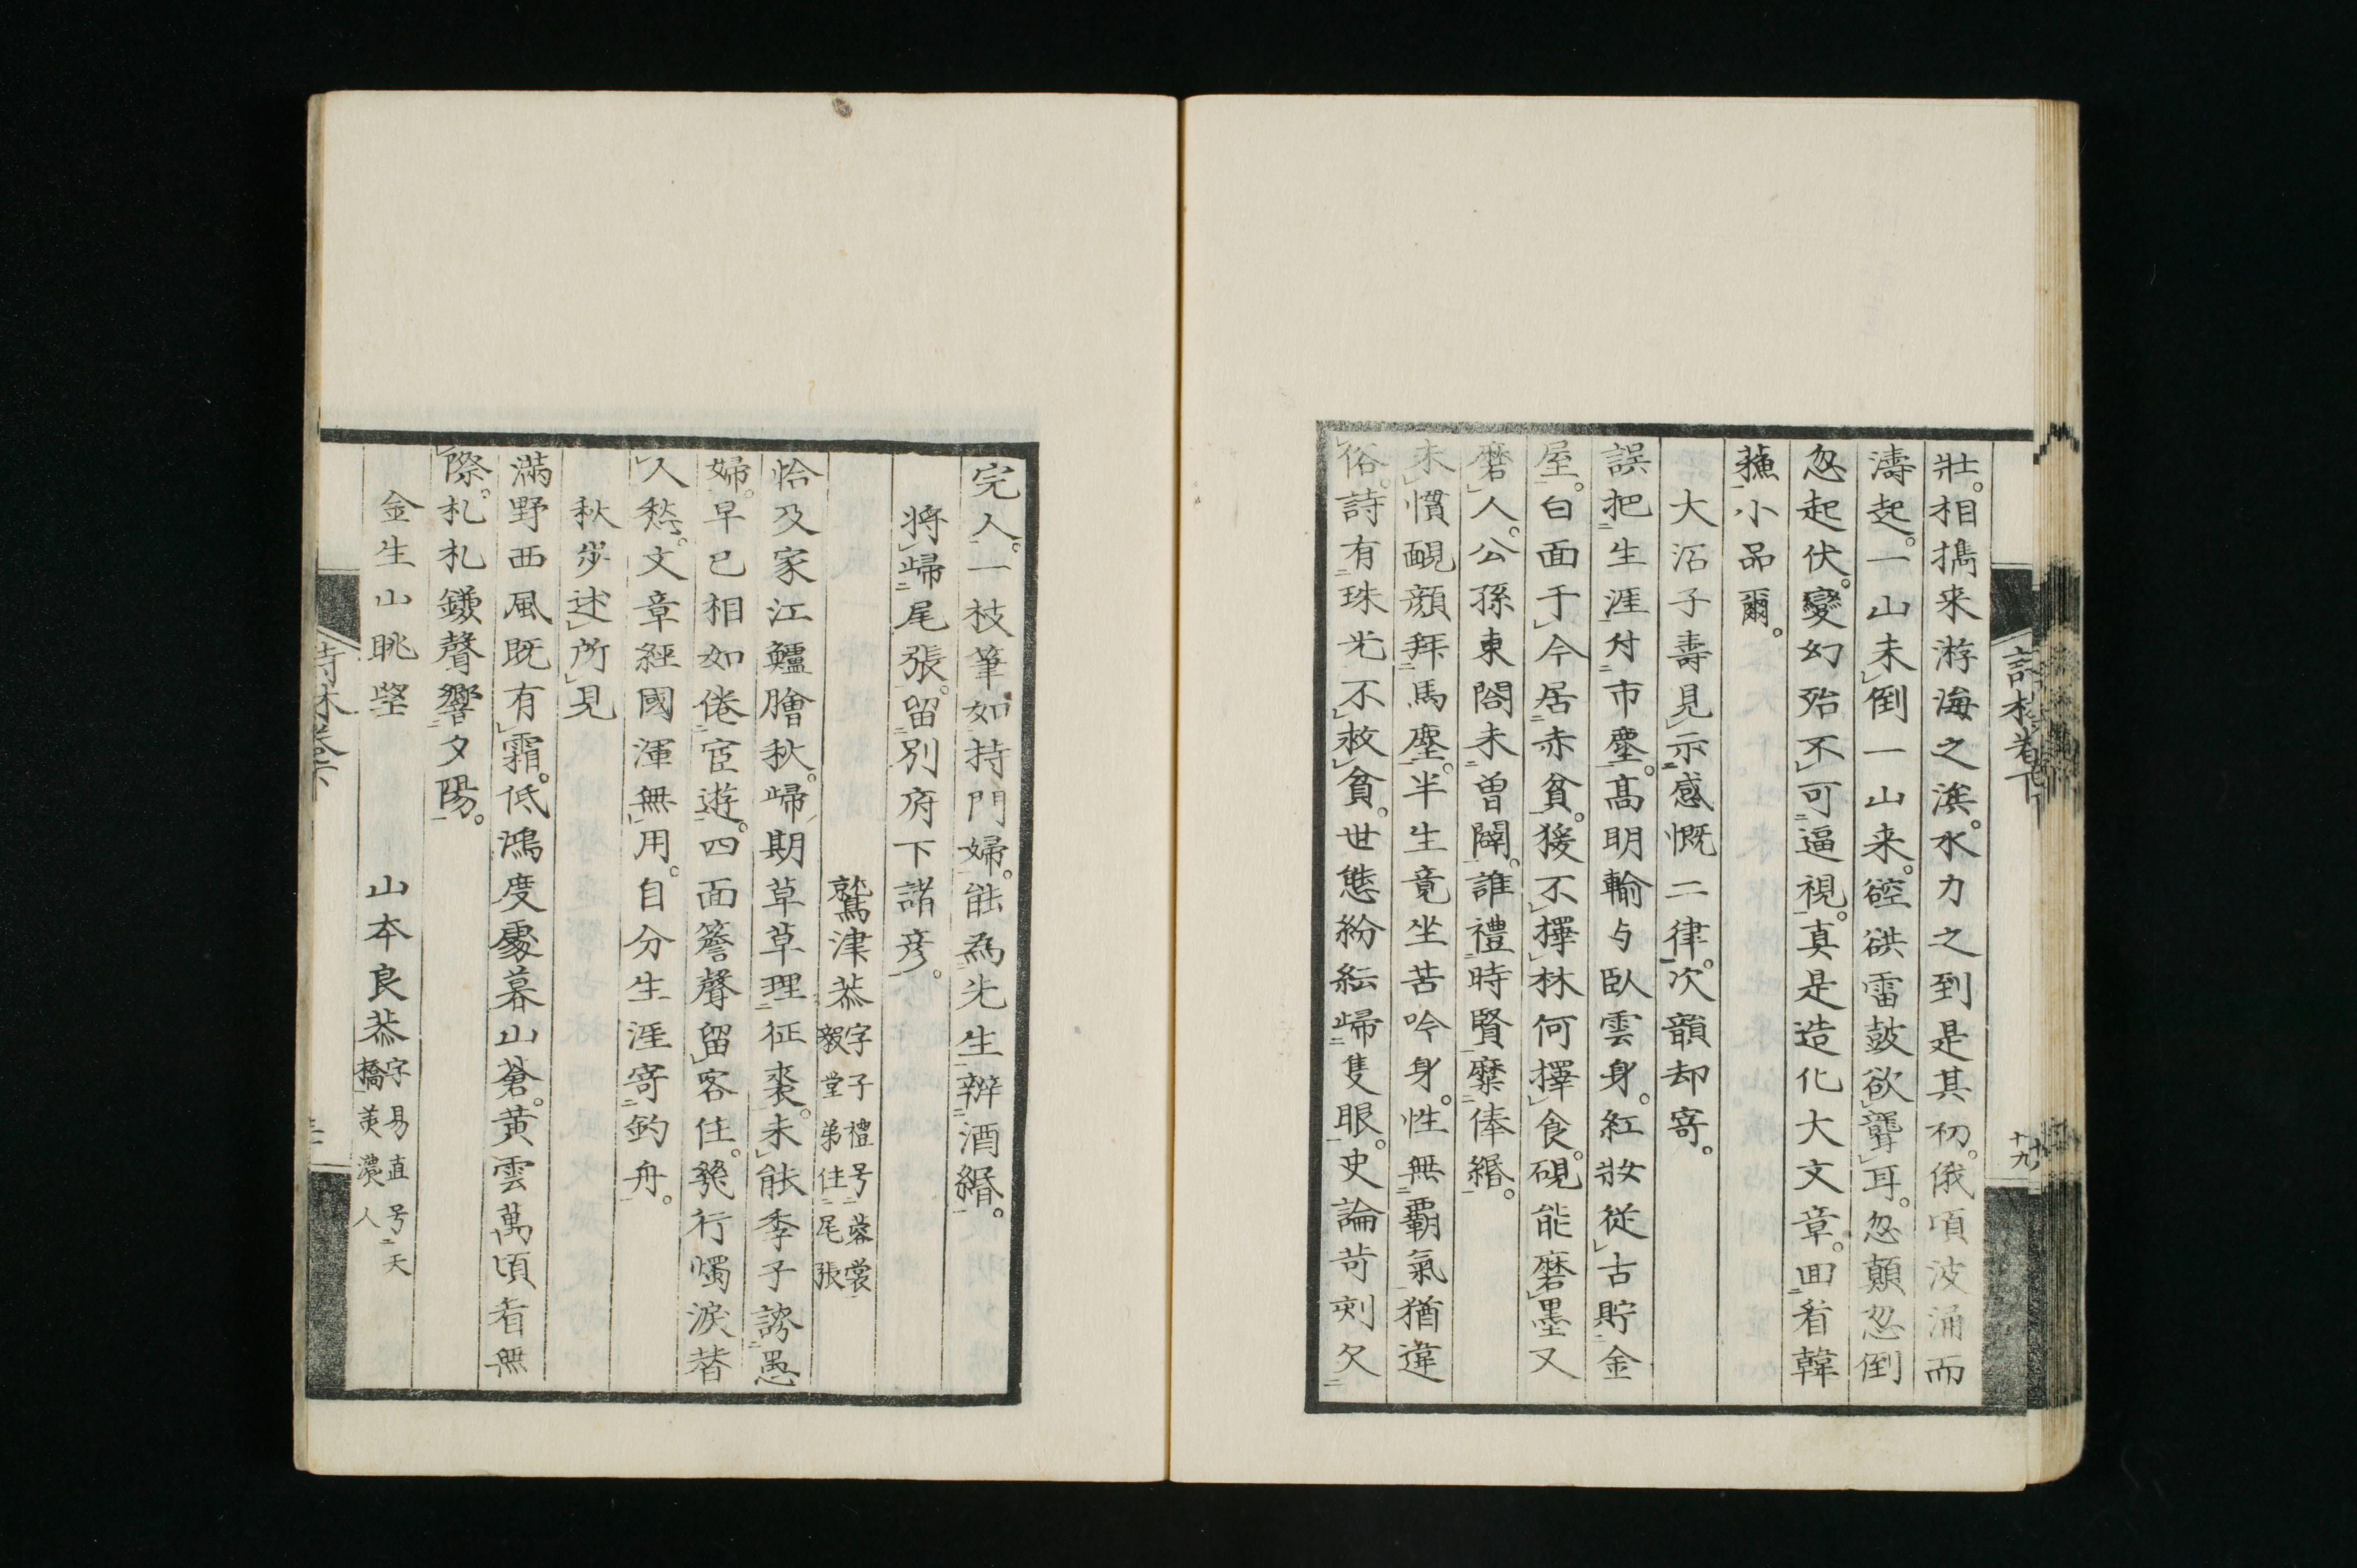 壯。相擕来游海之濱。水力之到是其初。俄頃波涌而
濤起。一山未倒一山来。硿谼雷鼓欲聾耳。忽顛忽倒
忽起伏。變幻殆不可逼視。真是造化大文章。囬看韓
蘓小品爾。
大沼子壽見示感慨二律。次韻却寄。
誤把生涯付市塵。高明輸与臥雲身。紅妝從古貯金
屋。白面于今居赤貧。猨不擇林何擇食。硯能磨墨又
磨人。公孫東閤未曽闢。誰禮時賢縻俸緡。
未慣覥顔拜馬塵。半生竟坐苦吟身。性無覇氣猶違
俗。詩有珠光不救貧。世態紛紜歸隻眼。史論苛刻欠
完人。一枝筆如持門婦。能為先生辨酒緡。
將歸尾張。留別府下諸彦。
鷲津恭字子禮号蓉裳
毅堂弟住尾張
恰及家江鱸膾秋。歸期草草理征裘。未能季子誇愚
婦。早已相如倦宦遊。四面簷聲留客住。幾行燭淚替
人愁。文章經國渾無用。自分生涯寄釣舟。
秋歩述所見
滿野西風既有霜。低鴻度處暮山蒼。黃雲萬頃看無
際。札札鎌聲響夕陽。
金生山眺望
山本良恭字易直号天
橋美濃人